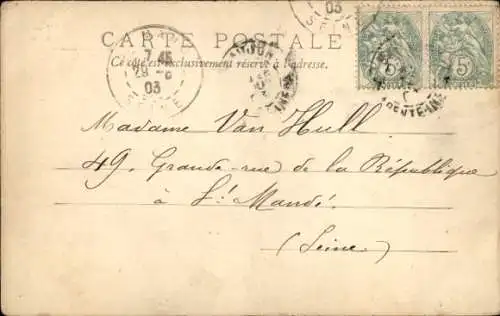 CARTE POSTALE
Ce côté est exclusivement réservé à l'adresse.
03
7 45
03
5c 5c
Madame Van Hull
49, Grande-rue de la République
à St Mandé.
(Seine)